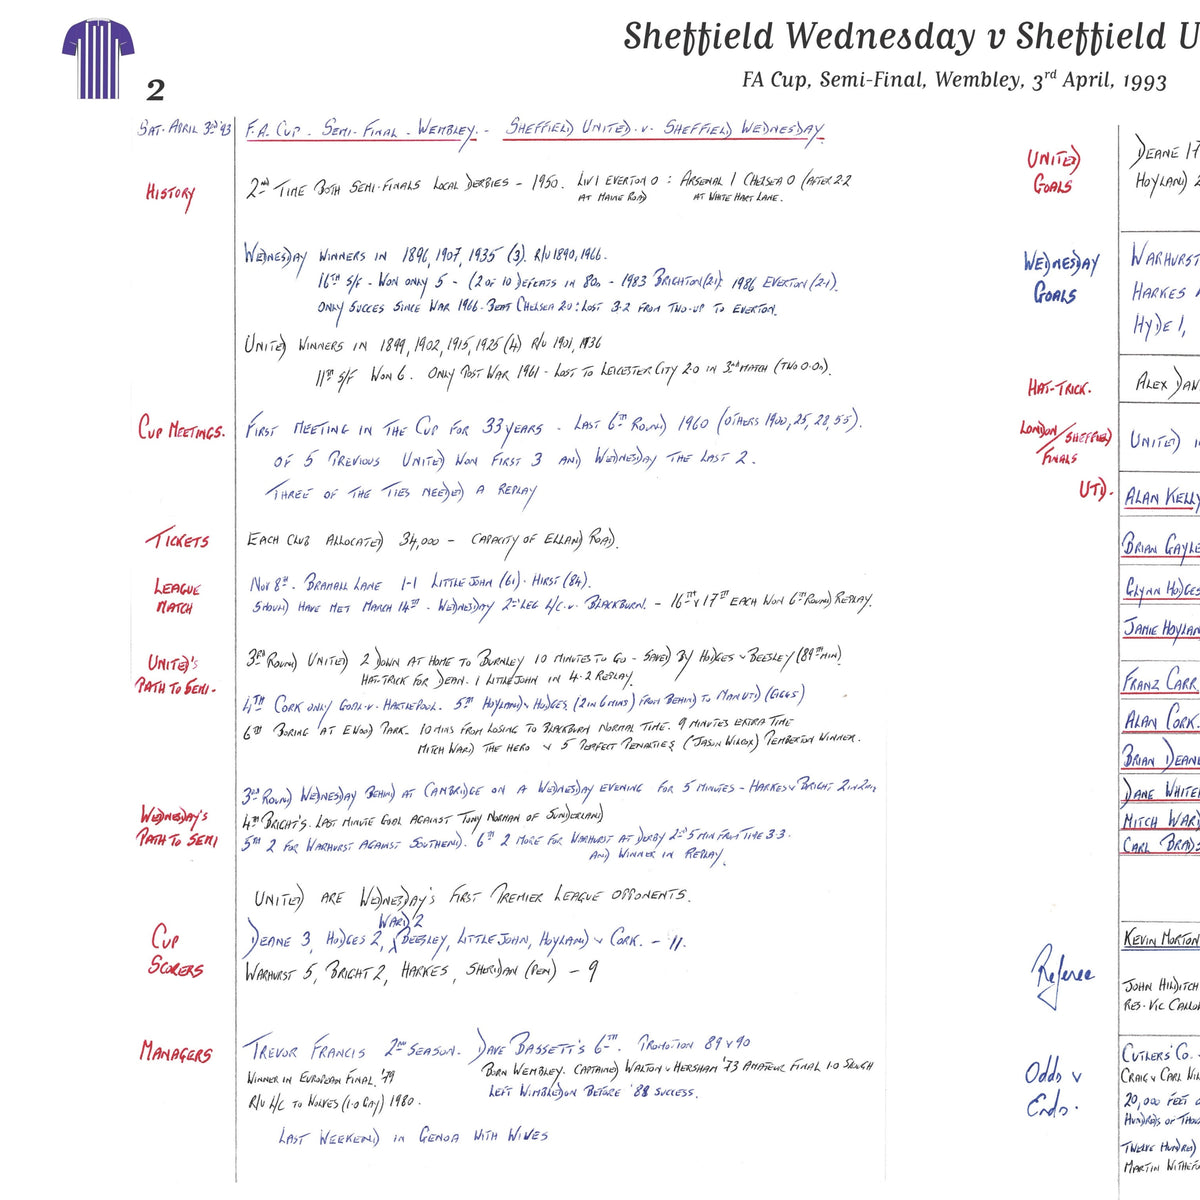 Sheffield Wednesday v Sheffield U
FA Cup, Semi-Final, Wembley, 3rd April, 1993
2
SAT. APRIL 3RD '93
F.A. CUP - SEMI-FINAL - WEMBLEY. - SHEFFIELD UNITED. v. SHEFFIELD WEDNESDAY
HISTORY
2ND TIME BOTH SEMI-FINALS LOCAL DERBIES - 1950. LIV 1 EVERTON 0 : ARSENAL 1 CHELSEA 0 (AFTER 2-2
AT MAINE ROAD AT WHITE HART LANE.
WEDNESDAY WINNERS IN 1896, 1907, 1935 (3). R/U 1890, 1966.
16TH S/F - WON ONLY 5 - (2 OF 10) DEFEATS IN 80s - 1983 BRIGHTON (2-1) 1986 EVERTON (2-1).
ONLY SUCCES SINCE WAR 1966 - BEAT CHELSEA 2-0 : LOST 3-2 FROM TWO-UP TO EVERTON.
UNITED WINNERS IN 1899, 1902, 1915, 1925 (4) R/U 1901, 1936
11TH S/F WON 6. ONLY POST WAR 1961 - LOST TO LEICESTER CITY 2-0 IN 3RD MATCH (TWO 0-0s).
CUP MEETINGS.
FIRST MEETING IN THE CUP FOR 33 YEARS - LAST 6TH ROUND 1960 (OTHERS 1900, 25, 28, 55).
OF 5 PREVIOUS UNITED WON FIRST 3 AND WEDNESDAY THE LAST 2.
THREE OF THE TIES NEEDED A REPLAY
TICKETS
EACH CLUB ALLOCATED 34,000 - CAPACITY OF ELLAND ROAD.
LEAGUE
MATCH
NOV 8TH. BRAMALL LANE 1-1 LITTLEJOHN (61). HIRST (84).
SHOULD HAVE MET MARCH 14TH - WEDNESDAY 2ND LEG L/C. v. BLACKBURN. - 16TH v 17TH EACH WON 6TH ROUND REPLAY.
UNITED'S
PATH TO SEMI-
3RD ROUND UNITED 2 DOWN AT HOME TO BURNLEY 10 MINUTES TO GO - SAVED BY HODGES v BEESLEY (89TH MIN)
HAT-TRICK FOR DEAN. 1 LITTLEJOHN IN 4-2 REPLAY.
4TH CORK ONLY GOAL v. HARTLEPOOL. 5TH HOYLAND v HODGES (2 IN 6 MINS) FROM BEHIND TO MAN UTD (GIGGS)
6TH BORING AT EWOOD PARK. 10 MINS FROM LOSING TO BLACKBURN NORMAL TIME. 9 MINUTES EXTRA TIME
MITCH WARD THE HERO v 5 PERFECT PENALTIES (JASON WILCOX) PEMBERTON WINNER.
WEDNESDAY'S
PATH TO SEMI
3RD ROUND WEDNESDAY BEHIND AT CAMBRIDGE ON A WEDNESDAY EVENING FOR 5 MINUTES - HARKES v BRIGHT 2 IN 2MIN
4TH BRIGHT'S. LAST MINUTE GOAL AGAINST TONY NORMAN OF SUNDERLAND
5TH 2 FOR WARHURST AGAINST SOUTHEND. 6TH 2 MORE FOR WARHURST AT DERBY 2ND 5 MIN FROM TIME 3-3.
AND WINNER IN REPLAY.
UNITED ARE WEDNESDAY'S FIRST PREMIER LEAGUE OPPONENTS.
CUP
SCORERS
WARD 2
DEANE 3, HODGES 2, BEESLEY, LITTLEJOHN, HOYLAND v CORK. - 11.
WARHURST 5, BRIGHT 2, HARKES, SHERIDAN (PEN) - 9
MANAGERS
TREVOR FRANCIS 2ND SEASON. DAVE BASSETT'S 6TH. PROMOTION 89 v 90
WINNER IN EUROPEAN FINAL '79 BORN WEMBLEY. CAPTAINED WALTON v HERSHAM '73 AMATEUR FINAL 1-0 SLOUGH
R/U L/C TO WOLVES (1-0 GRAY) 1980. LEFT WIMBLEDON BEFORE '88 SUCCESS.
LAST WEEKEND IN GENOA WITH WIVES
UNITED
GOALS
DEANE 17
HOYLAND 2
WEDNESDAY
GOALS
WARHURST
HARKES
HYDE 1,
HAT-TRICK.
ALEX DAN
LONDON/SHEFFIELD
FINALS
UNITED
UTD.
ALAN KELLY
BRIAN GAYLE
GLYNN HODGES
JAMIE HOYLAN
FRANZ CARR
ALAN CORK.
BRIAN DEANE
DANE WHITE
MITCH WARD
CARL BRADS
KEVIN MORTON
Referee
JOHN HILDITCH
RES - VIC CALLOW
Odds v
Ends.
CUTLERS' CO.
CRAIG v CARL NI
20,000 FEET
HUNDREDS OF THOU
TWELVE HUNDRED
MARTIN WITHEFO